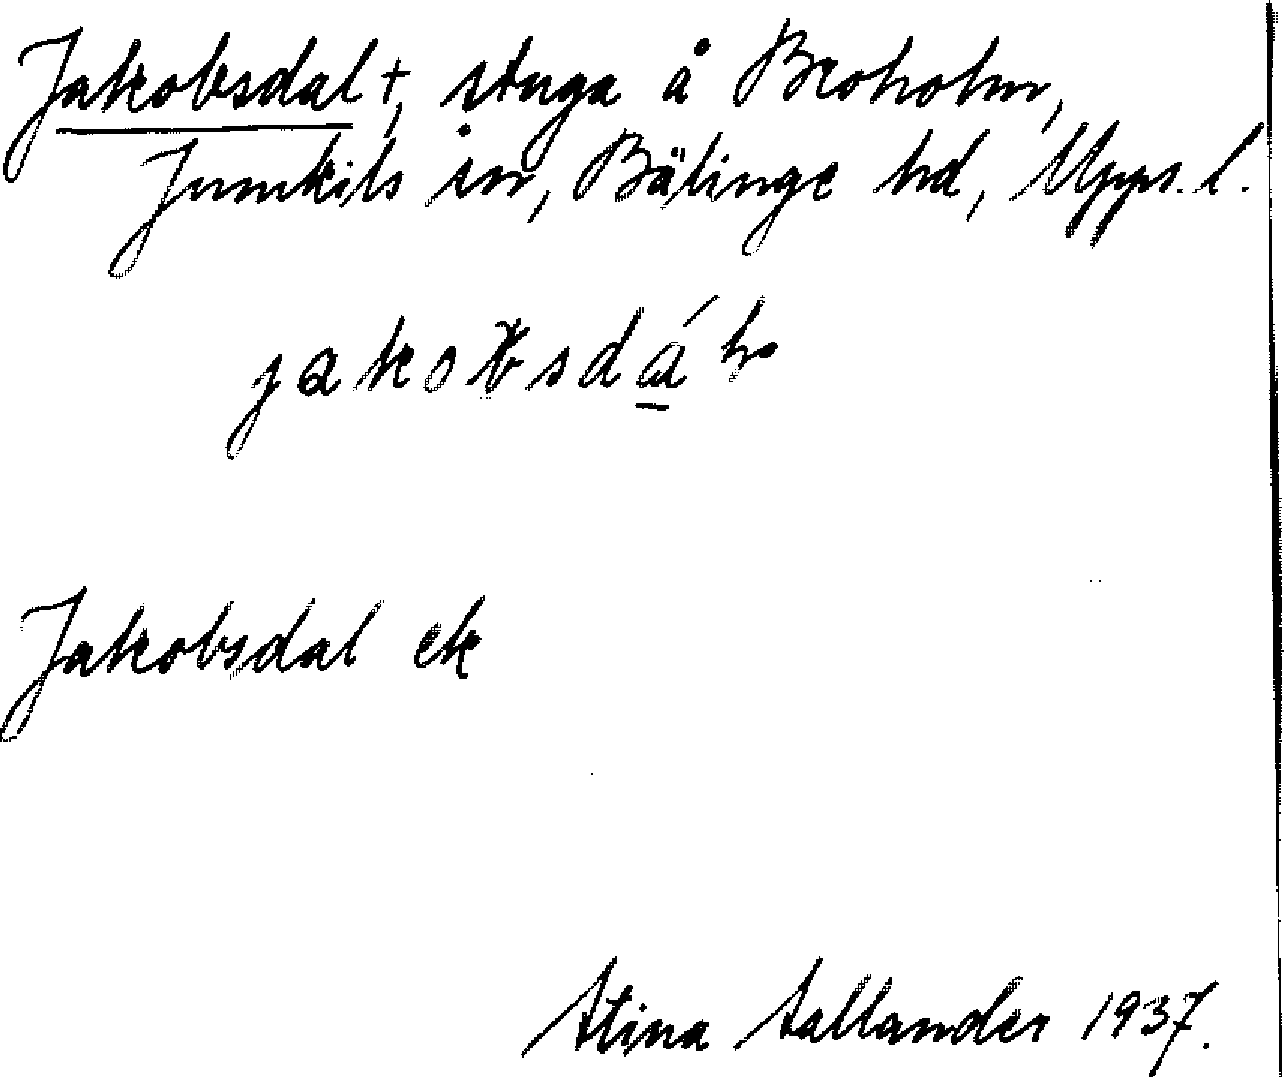 Jakobsdal †, stuga å Broholm,
Jumkils sn, Bälinge hd, Upps. l.
Jakobsdal ek
Stina Sallander 1937.